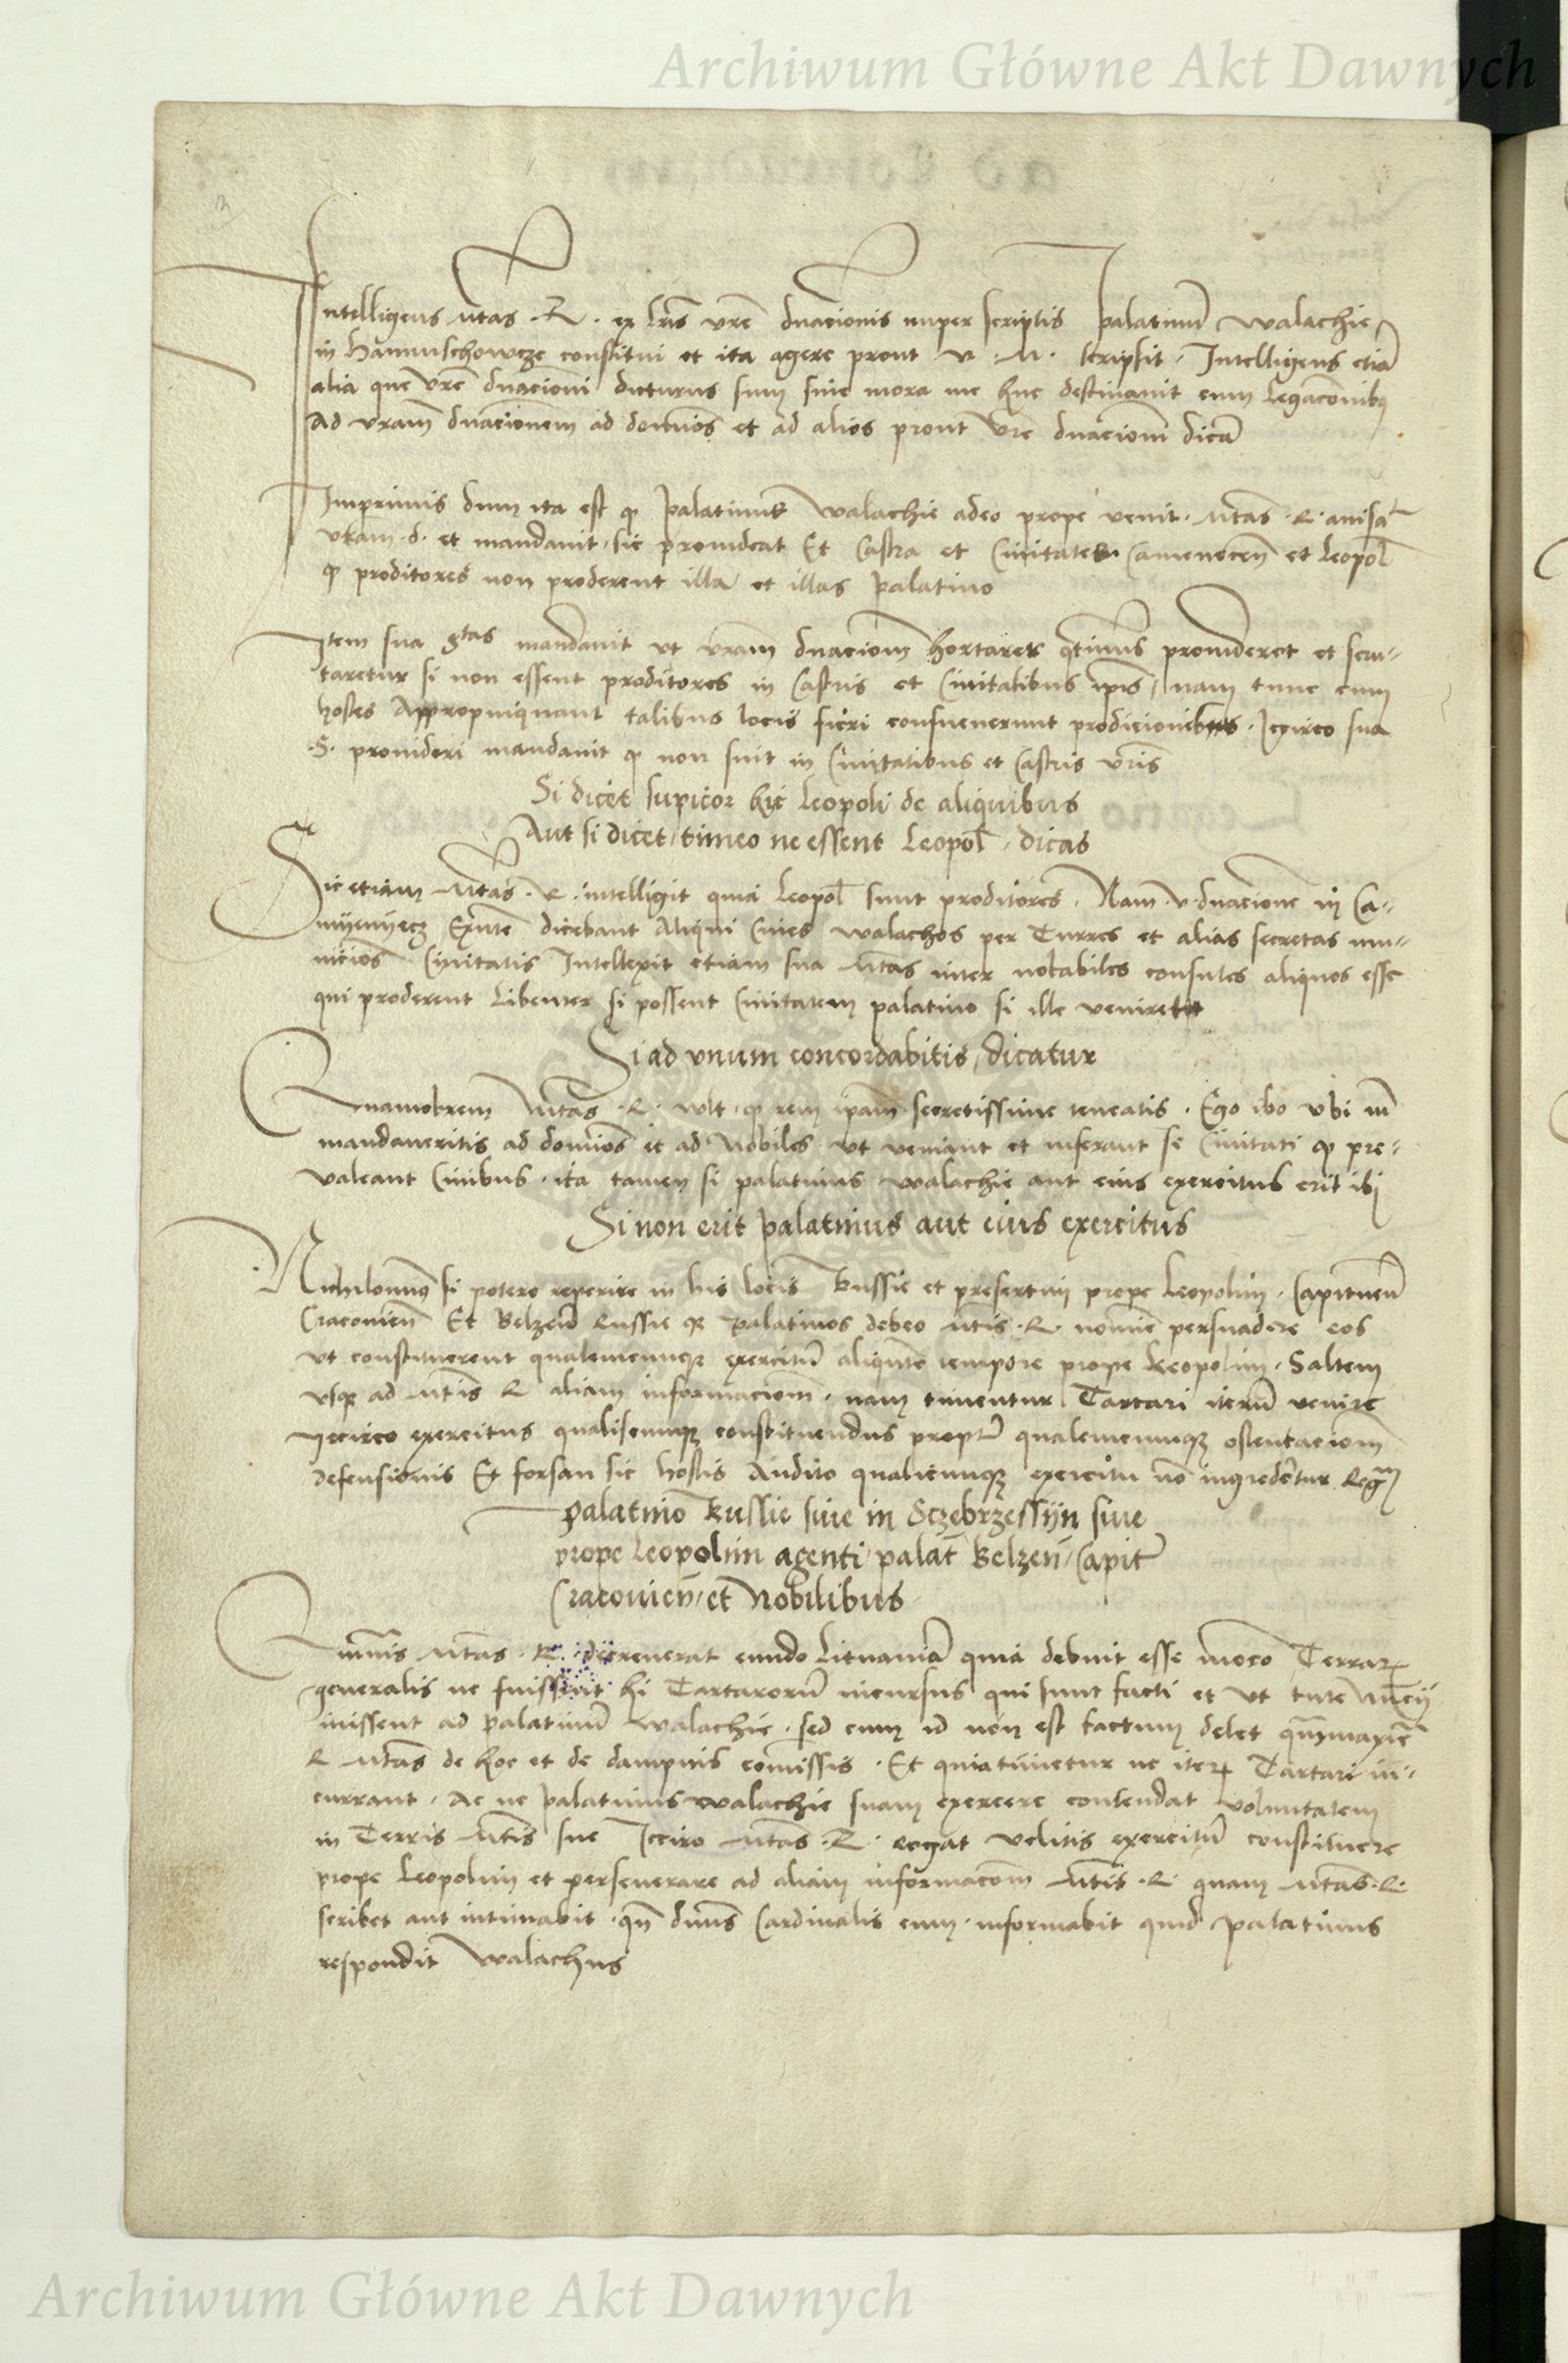 Archiwum Główne Akt Dawnych
Intelligens Mtas R. ex lris vre dnacionis nuper scriptis palatinu walachie
in Hannuschowcze constitui et ita agere prout v. M. scripsit. Intelligens etia
alia que vre dnacioni dicturus sum sine mora me huc destinavit cum legaconibus
Ad vram dnacionem ad domios et ad alios prout vre dnaciom dica
Imprimis dum ita est q palatinus walachie adeo prope venit. Mtas R. avisa
vram d. et mandavit, sic provideat Et Castra et Civitates Camenecen et leopol
q proditores non proderent illa et illas palatino
Item sua Stas mandavit ut vram dnaciom hortarer qtinus provideret et scru-
taretur si non essent proditores in Castris et Civitatibus ipis, nam tunc cum
hostes Appropinquant talibus locis fieri consueverunt prodicionibus. Iccirco sua
S. provideri mandavit q non sint in Civitatibus et Castris vris
Si dicet supicor hic leopoli de aliquibus
Aut si dicet, timeo ne essent leopol, dicas
Sic etiam Mtas R. intelligit quia leopol sunt proditores. Nam v dnacione in Ca-
myenyecz Exnte dicebant Aliqui Cives walachos per Turres et alias secretas mu-
nicios Civitatis Intellexit etiam sua Mtas inter notabiles consules aliquos esse
qui proderent libenter si possent Civitatem palatino si ille veniret
Si ad unum concordabitis, dicatur
Quamobrem Mtas R. vult q rem ipam secretissime teneatis. Ego ibo ubi m
mandaveritis ad domios et ad Nobiles ut veniant et inferant se Civitati q pre-
valeant Civibus, ita tamen si palatinus walachie aut eius exercitus erit ibi
Si non erit palatinus aut eius exercitus
Nichilomin si potero reperire in his locis Russie et presertim prope leopolim, Capitneu
Cracovien Et Belzen Russie q palatinos debeo Mtis R. nomine persuadere eos
ut constituerent qualemcunq exercitu aliqnto tempore prope leopolim. Saltem
usq ad Mtis R aliam informaciom, nam timentur Tartari iteru venire
Iccirco exercitus qualiscunq constituendus propt qualemcunq ostentaciom
defensionis Et forsan sic hostis Audito qualicunq exercitu no ingredetur Regm
palatino Russie sive in Sczebrzessyn sive
prope leopolim agenti, palat Belzen, Capit
Cracovien, et Nobilibus
Quavis Mtas R. decreverat eundo lituania quia debuit esse mocio Terrar
generalis ne fuissent hi Tartaroru incursus qui sunt facti et ut tute Nuncy
ivissent ad palatinu walachie, sed cum id non est factum dolet qmmaxie
R Mtas de hoc et de dampnis comissis. Et quia timetur ne iter Tartari in-
currant, Ac ne palatinus walachie suam exercere contendat voluntatem
in Terris Mtis sue Iccirco Mtas R. rogat velitis exercitu constituere
prope leopolim et perseverare ad aliam informacom Mtis R. quam Mtas R.
scribet aut intimabit, qn dnus Cardinalis eum informabit quid palatinus
respondit walachus
Archiwum Główne Akt Dawnych